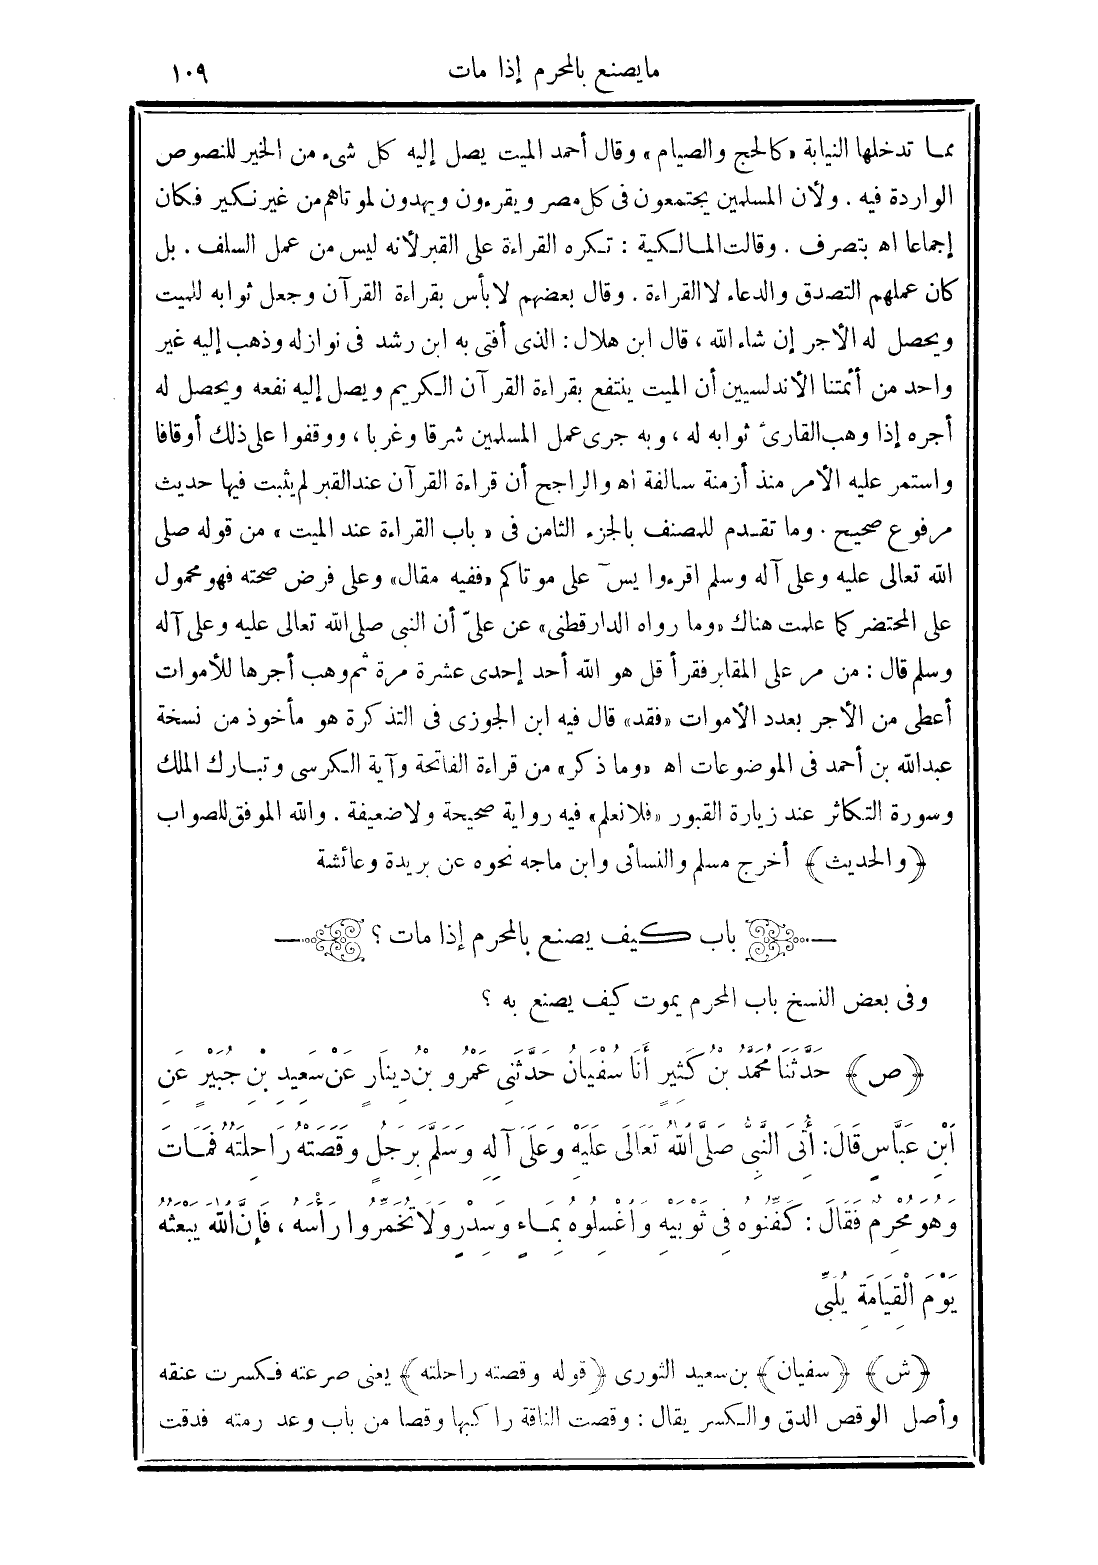 مايصنع بالمحرم إذا مات ١٠٩
مما تدخلها النيابة «كالحج والصيام» وقال أحمد الميت يصل إليه كل شىء من الخير للنصوص
الواردة فيه . ولأن المسلمين يجتمعون فى كل مصر ويقرءون ويهدون لموتاهم من غير نكير فكان
إجماعا اه بتصرف . وقالت المالكية : تكره القراءة على القبر لأنه ليس من عمل السلف . بل
كان عملهم التصدق والدعاء لا القراءة . وقال بعضهم لا بأس بقراءة القرآن وجعل ثوابه للميت
ويحصل له الأجر إن شاء الله ، قال ابن هلال : الذى أفتى به ابن رشد فى نوازله وذهب إليه غير
واحد من أئمتنا الأندلسيين أن الميت ينتفع بقراءة القرآن الكريم ويصل إليه نفعه ويحصل له
أجره إذا وهب القارئ ثوابه له ، وبه جرى عمل المسلمين شرقا وغربا ، ووقفوا على ذلك أوقافا
واستمر عليه الأمر منذ أزمنة سالفة اه والراجح أن قراءة القرآن عند القبر لم يثبت فيها حديث
مرفوع صحيح . وما تقدم للمصنف بالجزء الثامن فى « باب القراءة عند الميت » من قوله صلى
الله تعالى عليه وعلى آله وسلم اقرءوا يسۤ على موتاكم «ففيه مقال» وعلى فرض صحته فهو محمول
على المحتضر كما علمت هناك «وما رواه الدارقطنى» عن علىّ أن النبى صلى الله تعالى عليه وعلى آله
وسلم قال : من مر على المقابر فقرأ قل هو الله أحد إحدى عشرة مرة ثم وهب أجرها للأموات
أعطى من الأجر بعدد الأموات «فقد» قال فيه ابن الجوزى فى التذكرة هو مأخوذ من نسخة
عبدالله بن أحمد فى الموضوعات اه «وما ذكر» من قراءة الفاتحة وآية الكرسى وتبارك الملك
وسورة التكاثر عند زيارة القبور «فلا نعلم» فيه رواية صحيحة ولا ضعيفة . والله الموفق للصواب
﴿والحديث﴾ أخرج مسلم والنسائى وابن ماجه نحوه عن بريدة وعائشة
باب كيف يصنع بالمحرم إذا مات ؟
وفى بعض النسخ باب المحرم يموت كيف يصنع به ؟
﴿ص﴾ حَدَّثَنَا مُحَمَّدُ بْنُ كَثِيرٍ أَنَا سُفْيَانُ حَدَّثَنِى عَمْرُو بْنُ دِينَارٍ عَنْ سَعِيدِ بْنِ جُبَيْرٍ عَنِ
ابْنِ عَبَّاسٍ قَالَ: أُتِىَ النَّبِىُّ صَلَّى اللهُ تَعَالَى عَلَيْهِ وَعَلَى آلِهِ وَسَلَّمَ بِرَجُلٍ وَقَصَتْهُ رَاحِلَتُهُ فَمَاتَ
وَهُوَ مُحْرِمٌ فَقَالَ : كَفِّنُوهُ فِى ثَوْبَيْهِ وَاغْسِلُوهُ بِمَاءٍ وَسِدْرٍ وَلَا تُخَمِّرُوا رَأْسَهُ ، فَإِنَّ اللهَ يَبْعَثُهُ
يَوْمَ الْقِيَامَةِ يُلَبِّى
﴿ش﴾ ﴿سفيان﴾ بن سعيد الثورى ﴿قوله وقصته راحلته﴾ يعنى صرعته فكسرت عنقه
وأصل الوقص الدق والكسر يقال : وقصت الناقة راكبها وقصا من باب وعد رمته فدقت